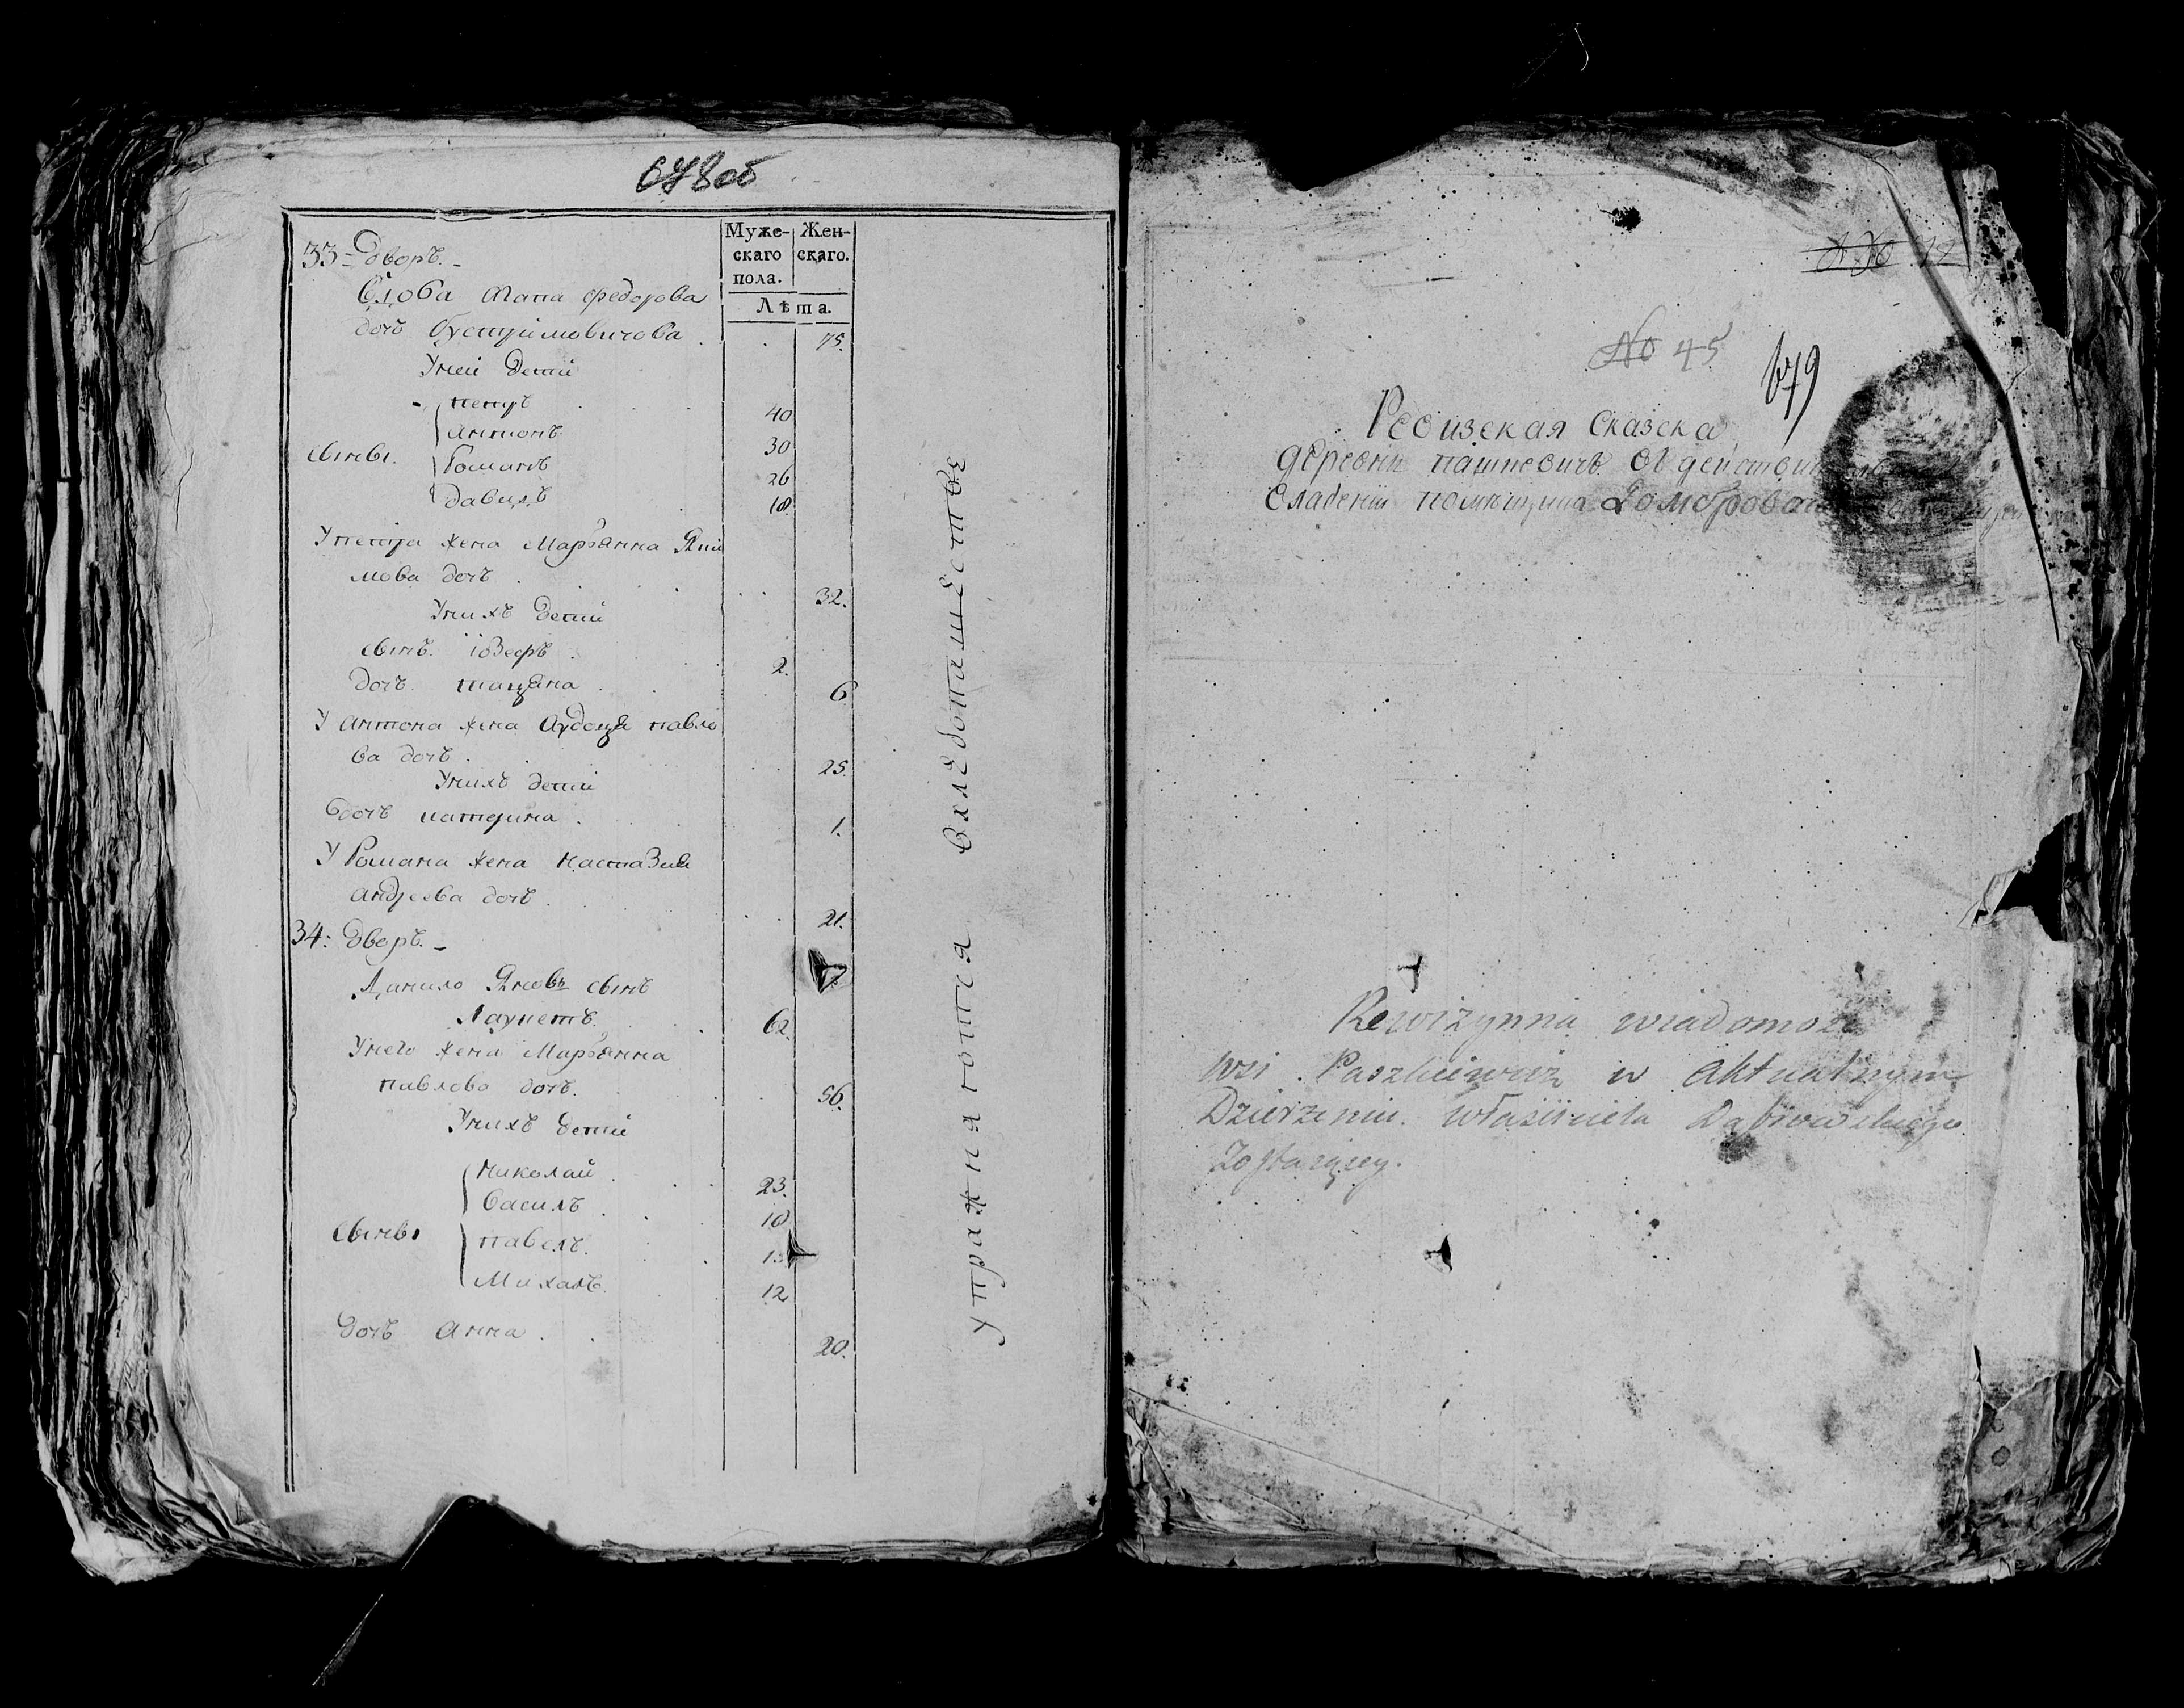 678об
Муже- Жен-
скаго скаго.
пола.
Лѣта.
33 = Дворъ. -
Вдова Агапа Федорова
дочь Бутримовичова . . 75.
У ней детй
Петръ . 40
Антонъ 30
сыны. Романъ 26
Давидъ 18.
У Петра жена Марьянна Яки
мова дочь . 32.
У нихъ детй
сынъ. іозефъ . 2.
дочь. тацяна . 6
У Антона жена Аудоця павло
ва дочь . 25.
У нихъ детй
дочь катерина . 1.
У Романа жена настазия
андреева дочь . 21.
34: Дворъ. -
Данило Яновъ сынъ
62.
У него жена Марьянна
павлова дочь. 56.
У нихъ детй
Николай . 23.
Василь . 18
сыны павелъ.
Михалъ. 12
дочь Анна . 20.
упражняются вхлебопашестве
No 45
679
Ревизская Сказска
деревни пашкевичъ въ
владении помещика
Rewizynna wiadomość
wsi Paszkiewicz w Aktualnym
Dzierzeniu właściciela Dąbrowskiego
Zostaiącey.